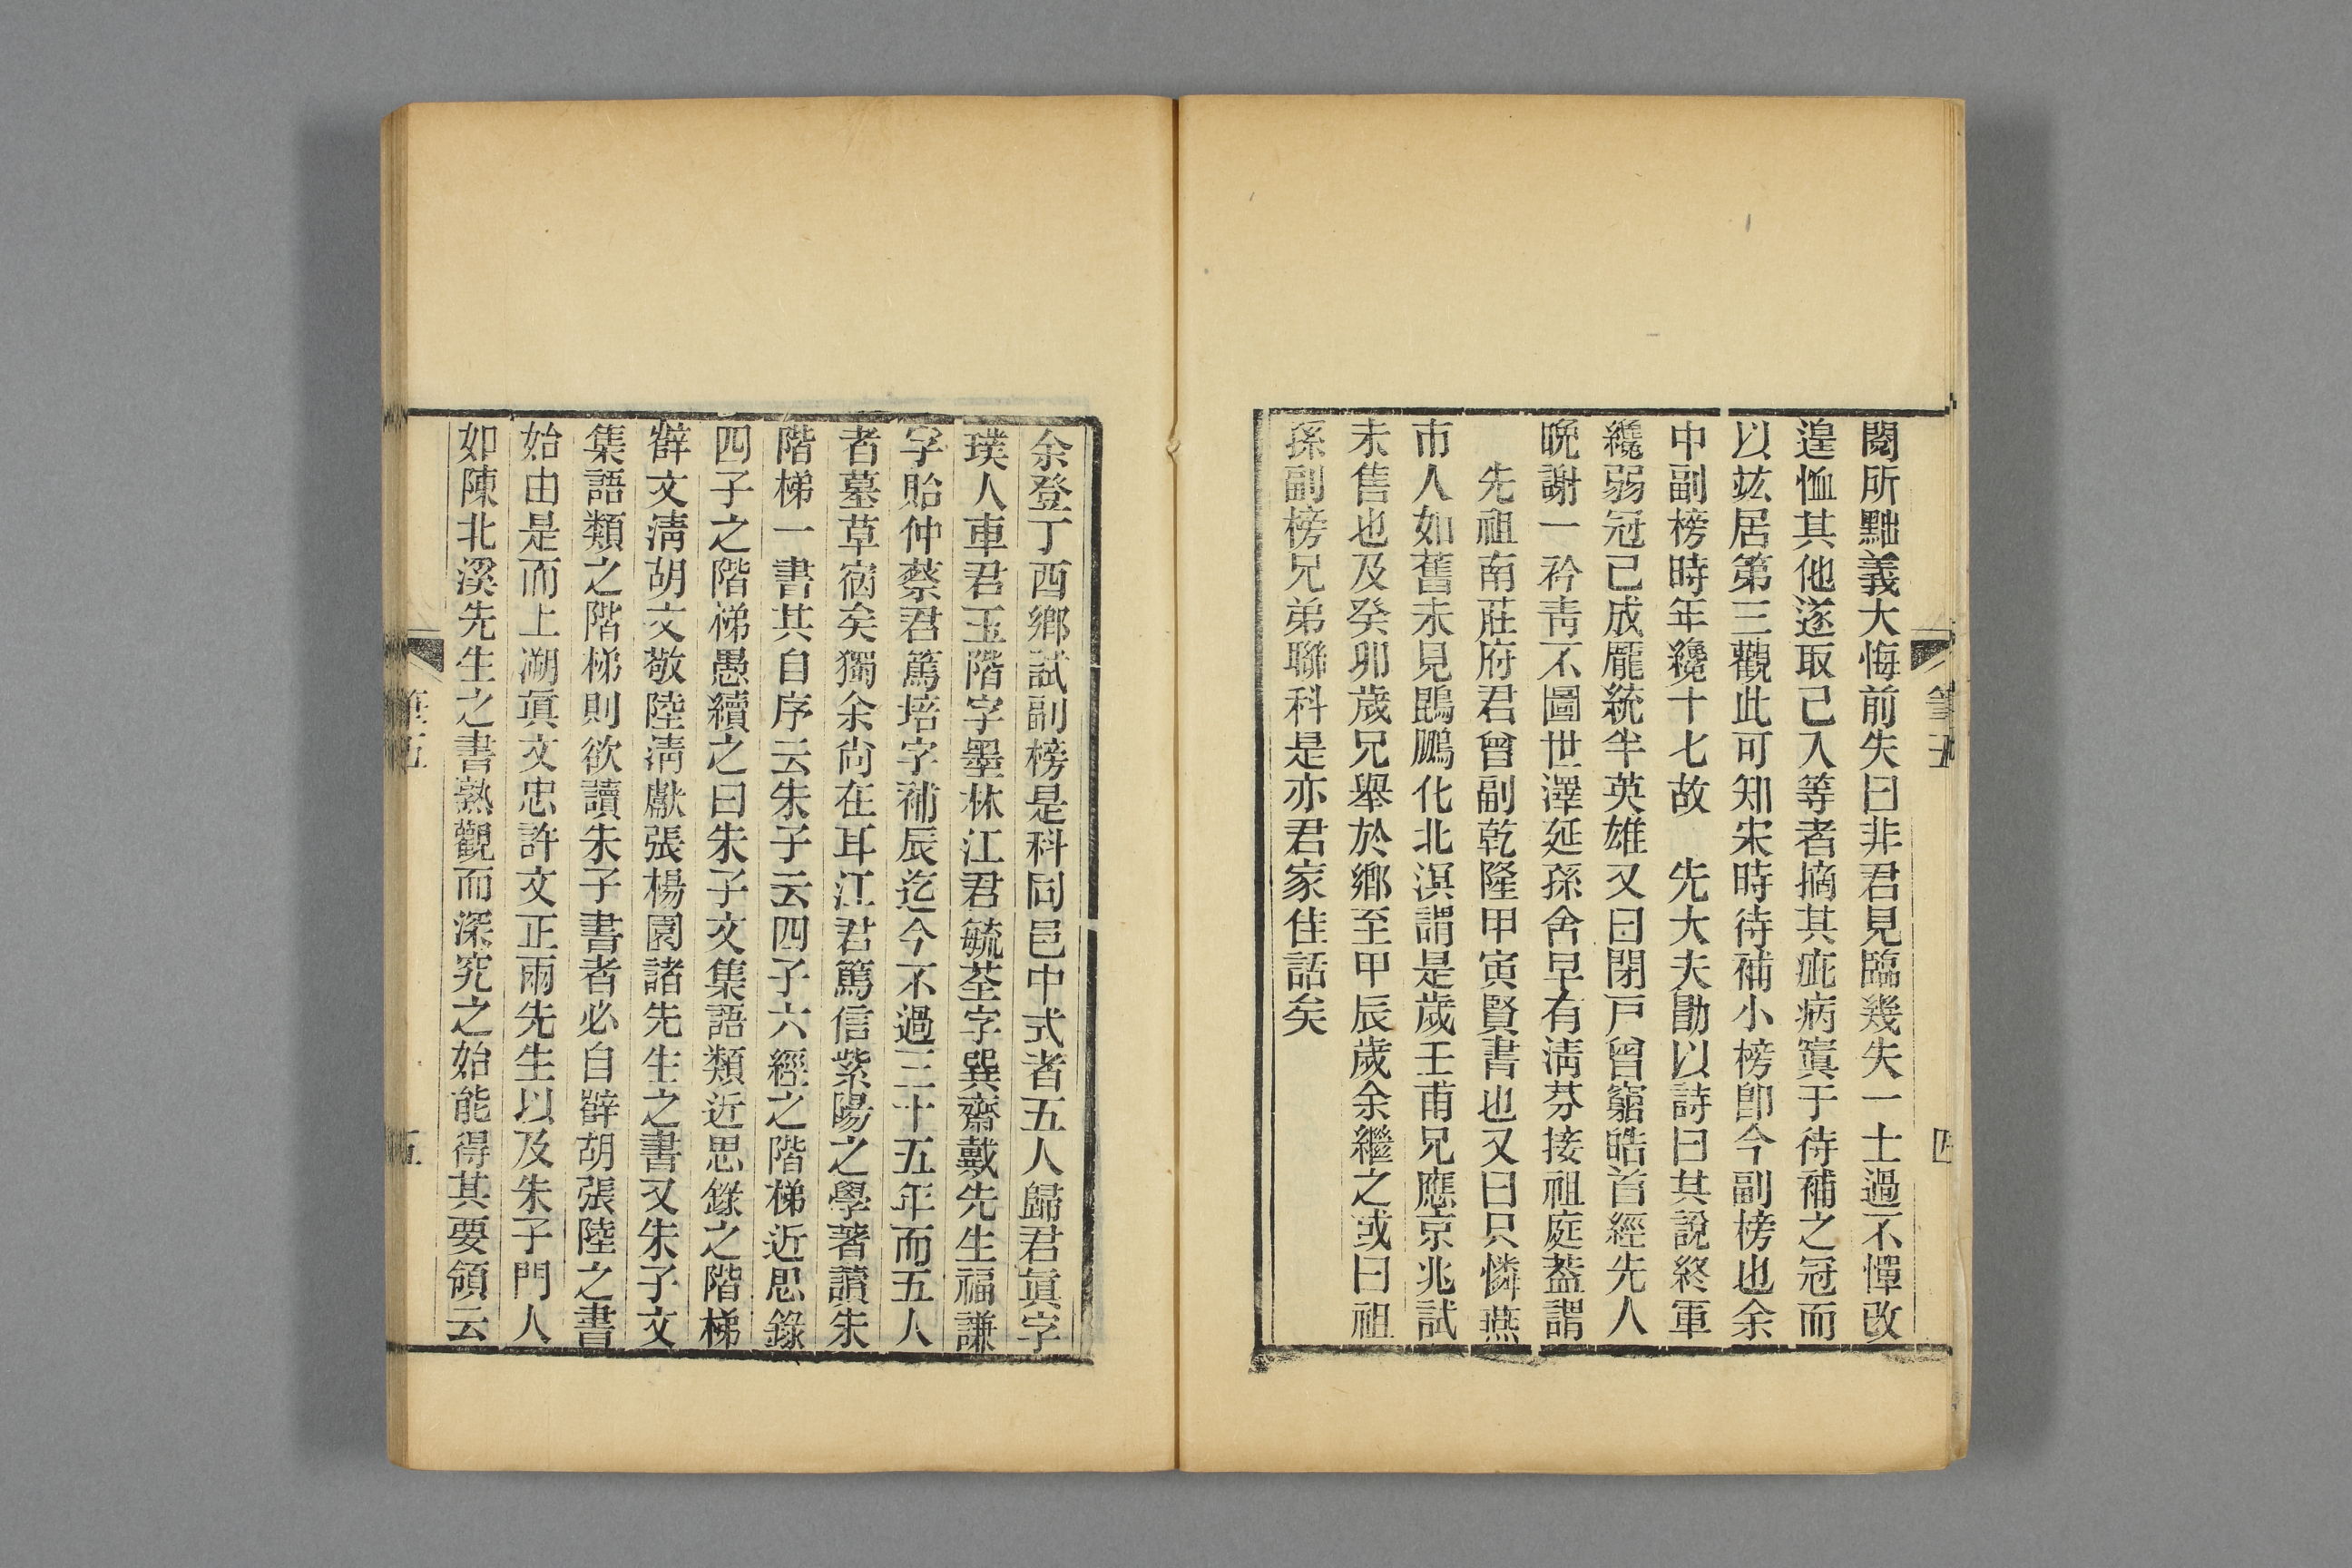 閱所黜義大悔前失曰非君見臨幾失一士過不憚改
遑恤其他遂取已入等者摘其疵病寘于待補之冠而
以竑居第三觀此可知宋時待補小榜卽今副榜也余
中副榜時年纔十七故　先大夫勖以詩曰其說終軍
纔弱冠已成龎統半英雄又曰閉戸曾窮皓首經先人
晩謝一衿靑不圖世澤延孫舍早有淸芬接祖庭葢謂
　先祖南莊府君曾副乾隆甲寅賢書也又曰只憐燕
市人如舊未見鵾鵬化北溟謂是歲壬甫兄應京兆試
未售也及癸卯歲兄舉於鄕至甲辰歲余繼之或曰祖
孫副榜兄弟聯科是亦君家佳話矣
筆五
四
余登丁酉鄕試副榜是科同邑中式者五人歸君眞字
璞人車君玉階字墨林江君毓荃字巽齋戴先生福謙
字貽仲蔡君篤培字補辰迄今不過三十五年而五人
者墓草宿矣獨余尙在耳江君篤信紫陽之學著讀朱
階梯一書其自序云朱子云四子六經之階梯近思錄
四子之階梯愚續之曰朱子文集語類近思錄之階梯
薛文淸胡文敬陸淸獻張楊園諸先生之書又朱子文
集語類之階梯則欲讀朱子書者必自薛胡張陸之書
始由是而上溯眞文忠許文正兩先生以及朱子門人
如陳北溪先生之書熟觀而深究之始能得其要領云
筆五
五